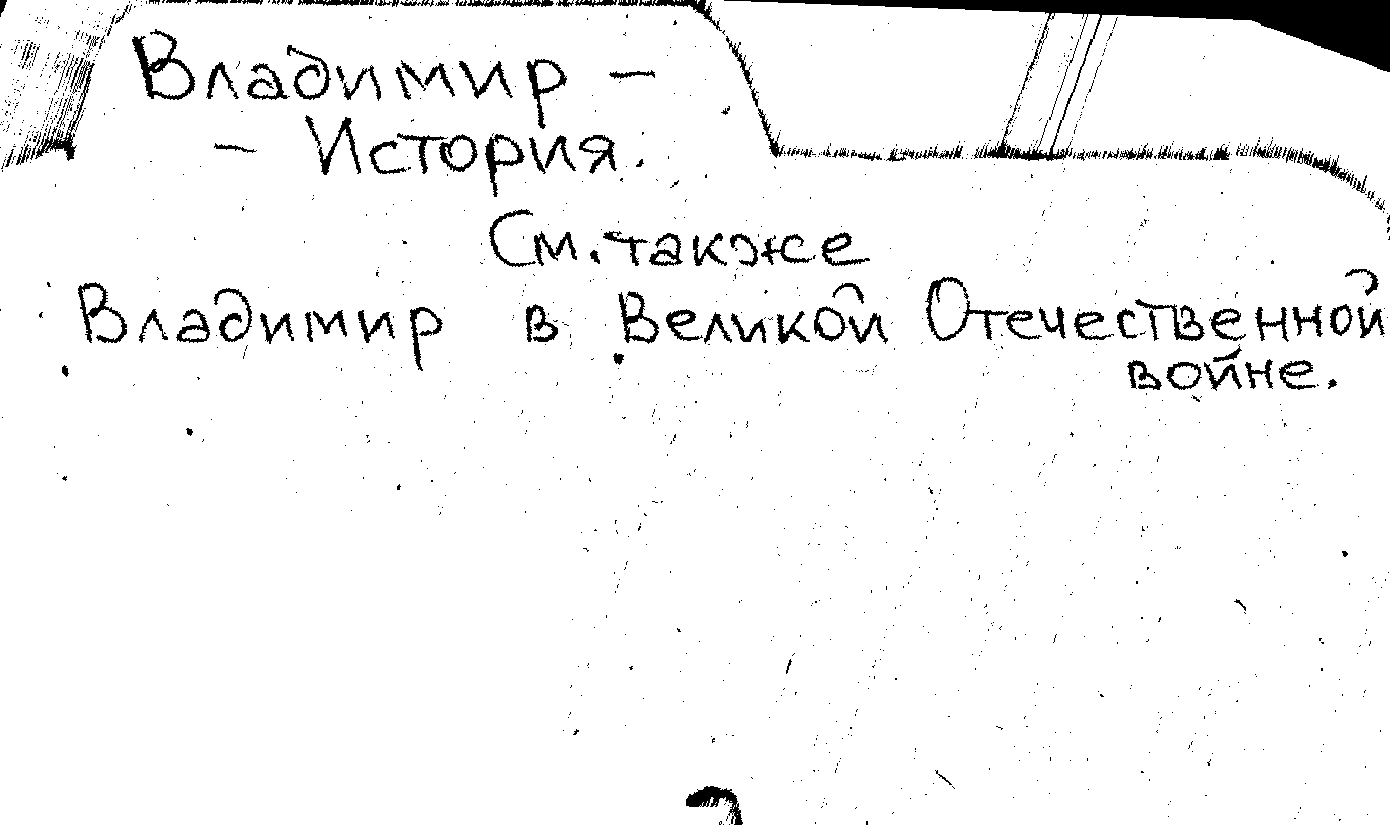 Владимир –
– История.
См. также
Владимир в Великой Отечественной
войне.